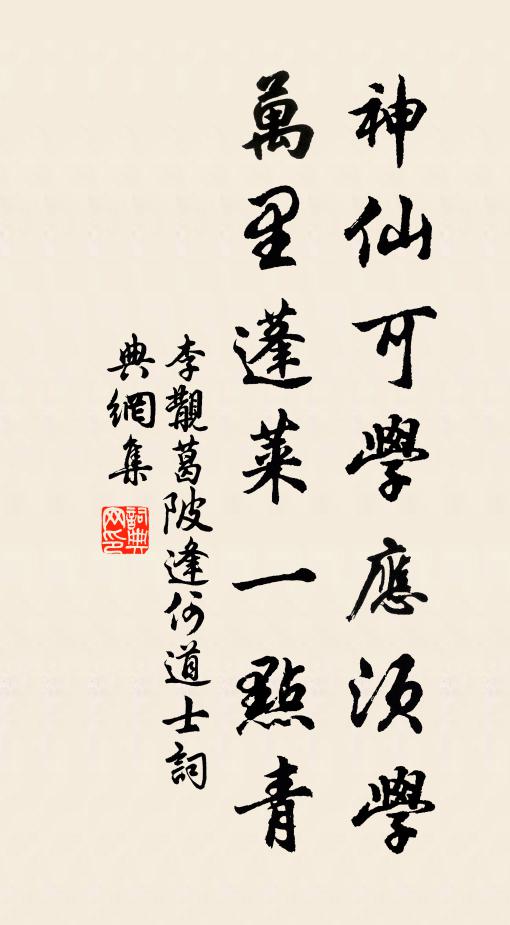 神仙可學應須學
萬里蓬萊一點青
李觀葛陂逢何道士詞
典網集
詞典
网印